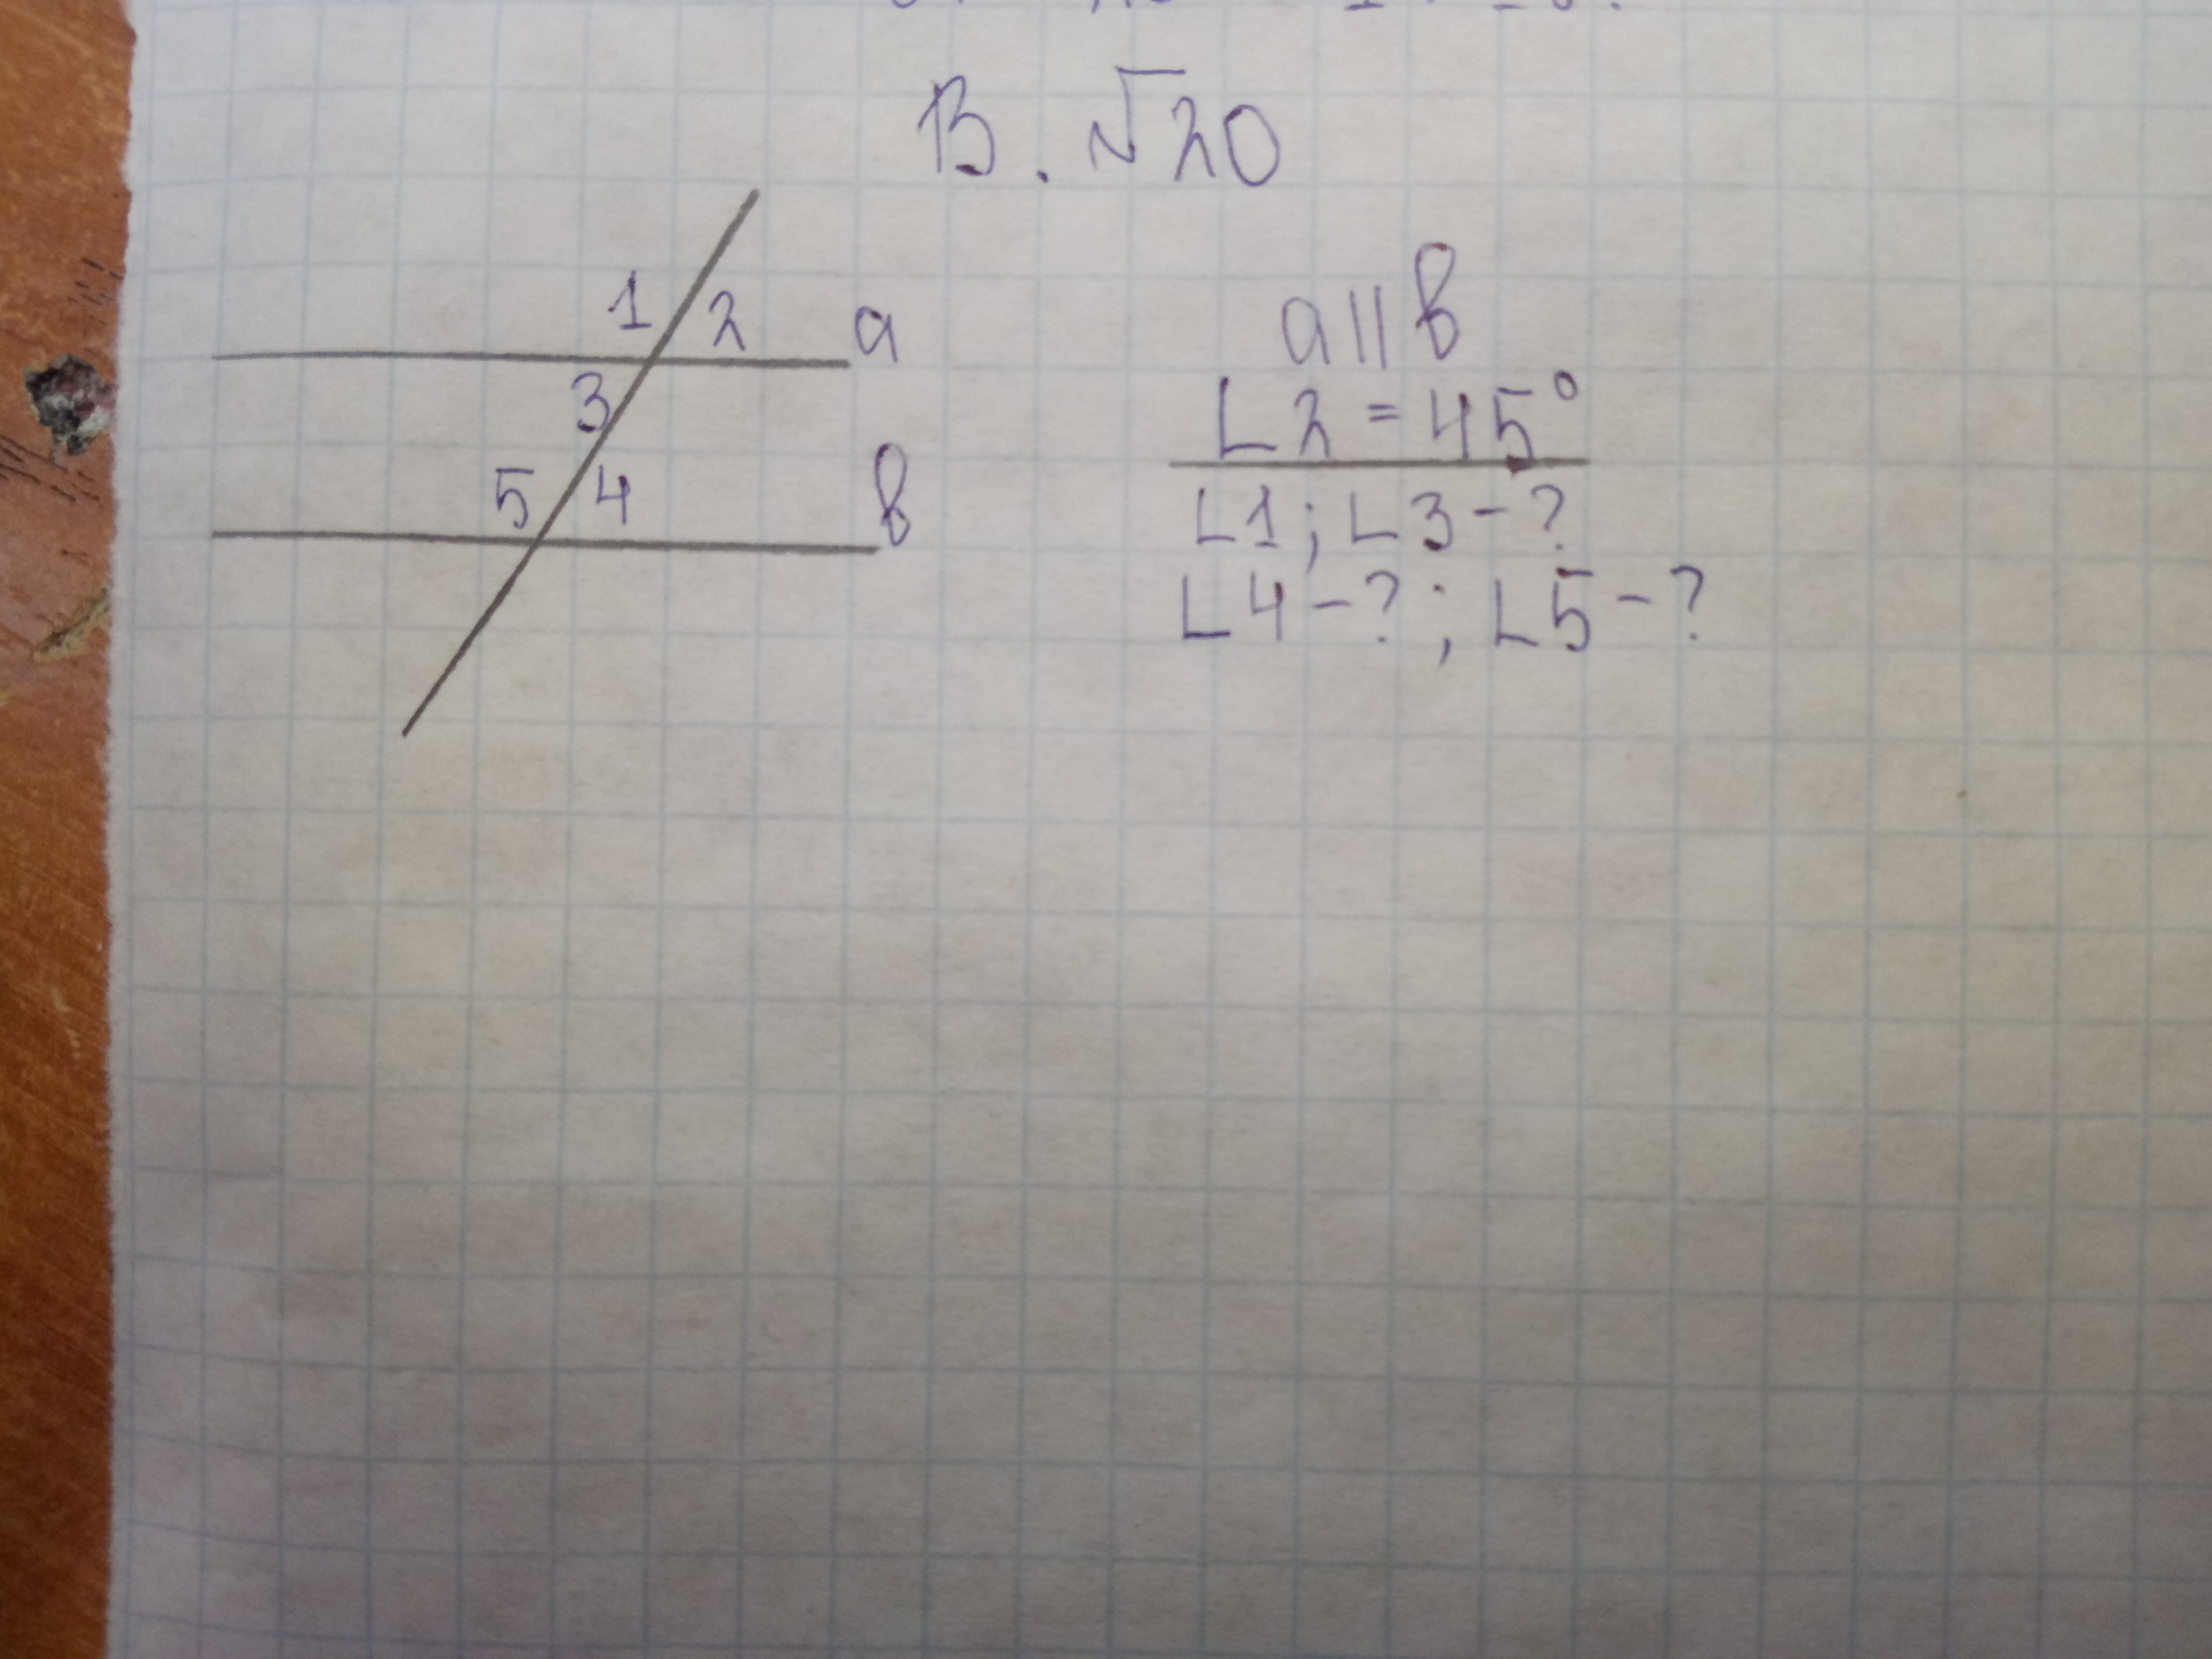 В. √20
1 2 a
3
5 4 в
a || в
∠2 = 45°
∠1; ∠3 - ?
∠4 - ?; ∠5 - ?